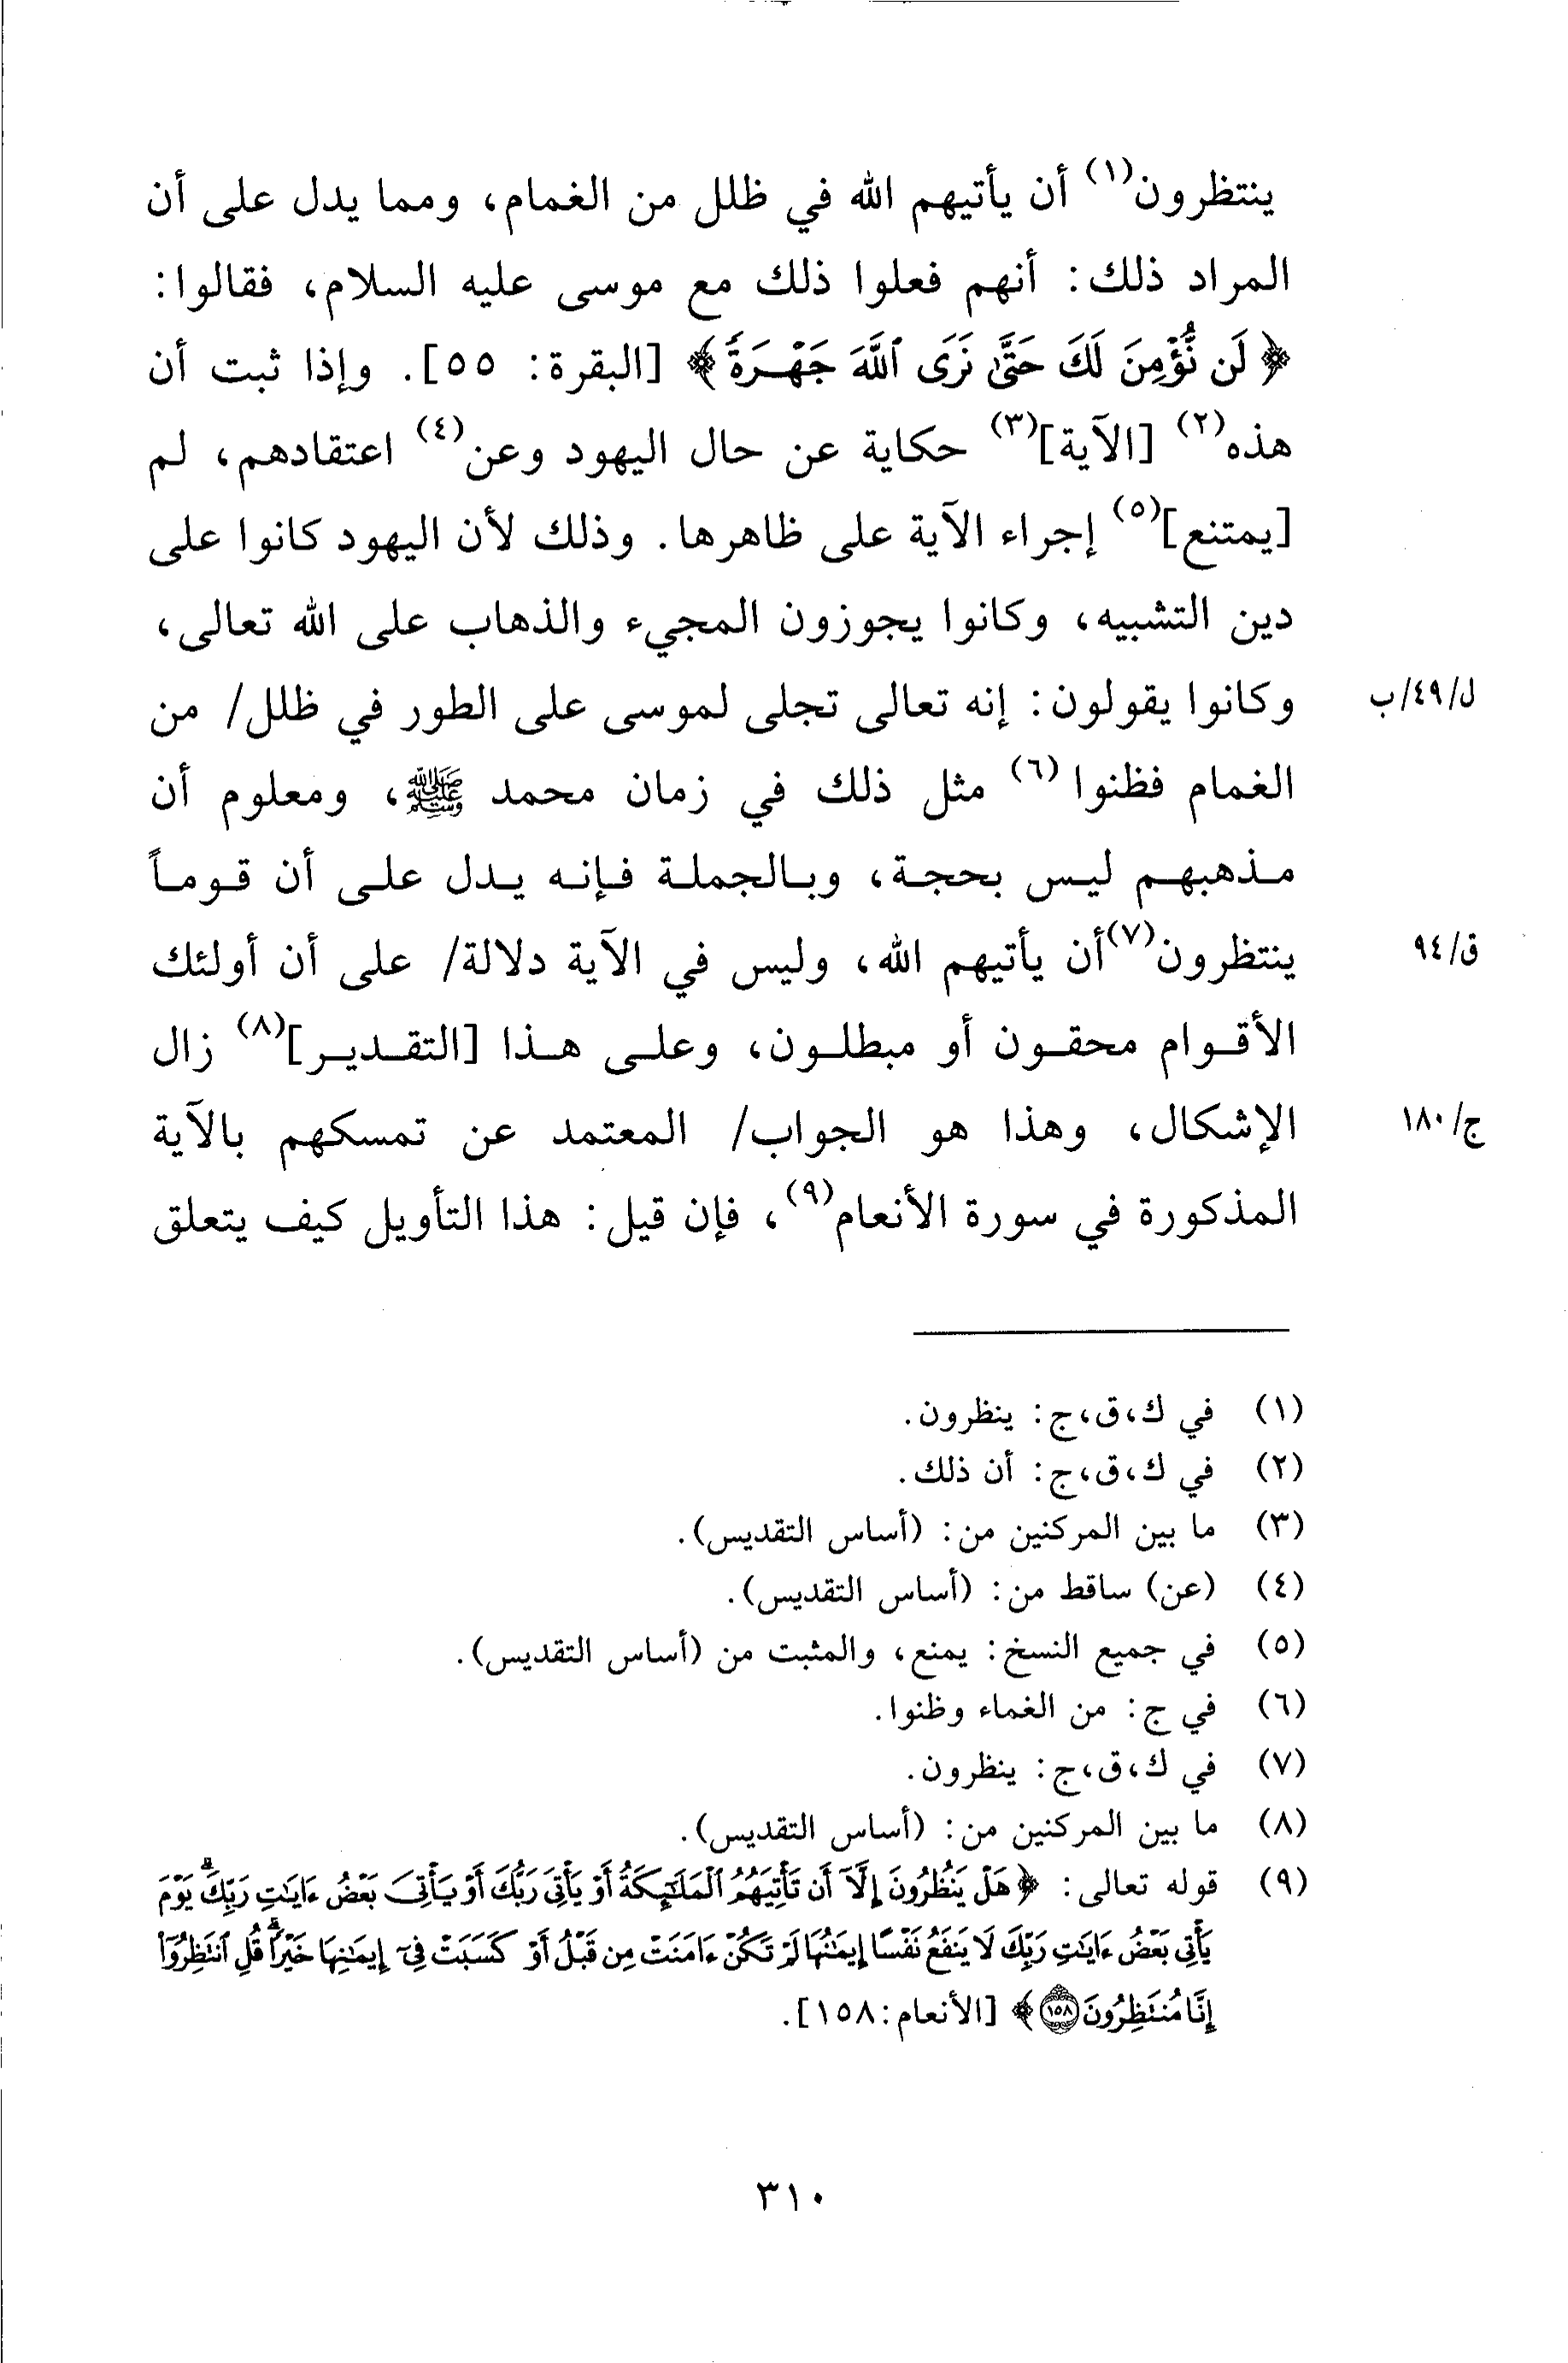 ينتظرون(١) أن يأتيهم الله في ظلل من الغمام، ومما يدل على أن
المراد ذلك: أنهم فعلوا ذلك مع موسى عليه السلام، فقالوا:
﴿لَن نُّؤْمِنَ لَكَ حَتَّىٰ نَرَى ٱللَّهَ جَهْرَةً﴾ [البقرة: ٥٥]. وإذا ثبت أن
هذه(٢) [الآية](٣) حكاية عن حال اليهود وعن(٤) اعتقادهم، لم
[يمتنع](٥) إجراء الآية على ظاهرها. وذلك لأن اليهود كانوا على
دين التشبيه، وكانوا يجوزون المجيء والذهاب على الله تعالى،
وكانوا يقولون: إنه تعالى تجلى لموسى على الطور في ظلل/ من
ل/٤٩/ب
الغمام فظنوا(٦) مثل ذلك في زمان محمد ﷺ، ومعلوم أن
مذهبهم ليس بحجة، وبالجملة فإنه يدل على أن قوماً
ينتظرون(٧) أن يأتيهم الله، وليس في الآية دلالة/ على أن أولئك
ق/٩٤
الأقوام محقون أو مبطلون، وعلى هذا [التقدير](٨) زال
الإشكال، وهذا هو الجواب/ المعتمد عن تمسكهم بالآية
ج/١٨٠
المذكورة في سورة الأنعام(٩)، فإن قيل: هذا التأويل كيف يتعلق
(١) في ك،ق،ج: ينظرون.
(٢) في ك،ق،ج: أن ذلك.
(٣) ما بين المركنين من: (أساس التقديس).
(٤) (عن) ساقط من: (أساس التقديس).
(٥) في جميع النسخ: يمنع، والمثبت من (أساس التقديس).
(٦) في ج: من الغماء وظنوا.
(٧) في ك،ق،ج: ينظرون.
(٨) ما بين المركنين من: (أساس التقديس).
(٩) قوله تعالى: ﴿هَلْ يَنظُرُونَ إِلَّآ أَن تَأْتِيَهُمُ ٱلْمَلَـٰٓئِكَةُ أَوْ يَأْتِىَ رَبُّكَ أَوْ يَأْتِىَ بَعْضُ ءَايَـٰتِ رَبِّكَ ۗ يَوْمَ
يَأْتِى بَعْضُ ءَايَـٰتِ رَبِّكَ لَا يَنفَعُ نَفْسًا إِيمَـٰنُهَا لَمْ تَكُنْ ءَامَنَتْ مِن قَبْلُ أَوْ كَسَبَتْ فِىٓ إِيمَـٰنِهَا خَيْرًا ۗ قُلِ ٱنتَظِرُوٓا۟
إِنَّا مُنتَظِرُونَ ١٥٨﴾ [الأنعام:١٥٨].
٣١٠